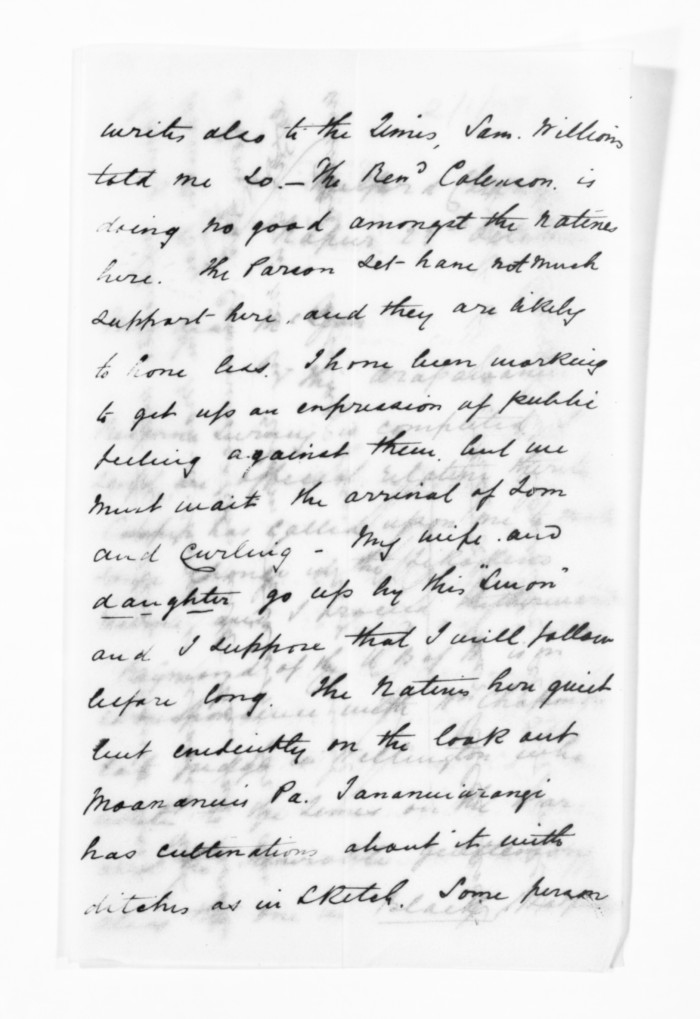 writes also to the Times, Sam. Williams
told me so. - The Rend Colenson. is
doing no good amongst the natives
here. The Parson set have not much
support here. and they are likely
to have less. I have been working
to get up an expression of public
feeling against them. but we
must wait the arrival of Tom
and Curling - My wife. and
daughter go up by this "Simon"
and I suppose that I will follow
before long. The Natives here quiet
but evidently on the look out
Moananuis Pa. Tananuiarangi
has cultivations about it with
ditches as in sketch. Some person